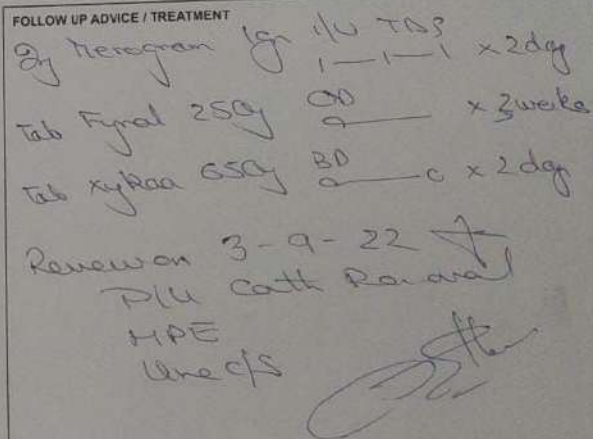 FOLLOW UP ADVICE / TREATMENT
Inj Merogram 1gm I/V TDS
1 — 1 — 1 x 2 day
Tab Fynal 250mg OD x 3 weeks
Tab Xykaa 650mg BD x 2 day
Review on 3-9-22
P/U Cath Removal
HPE
Urine C/S